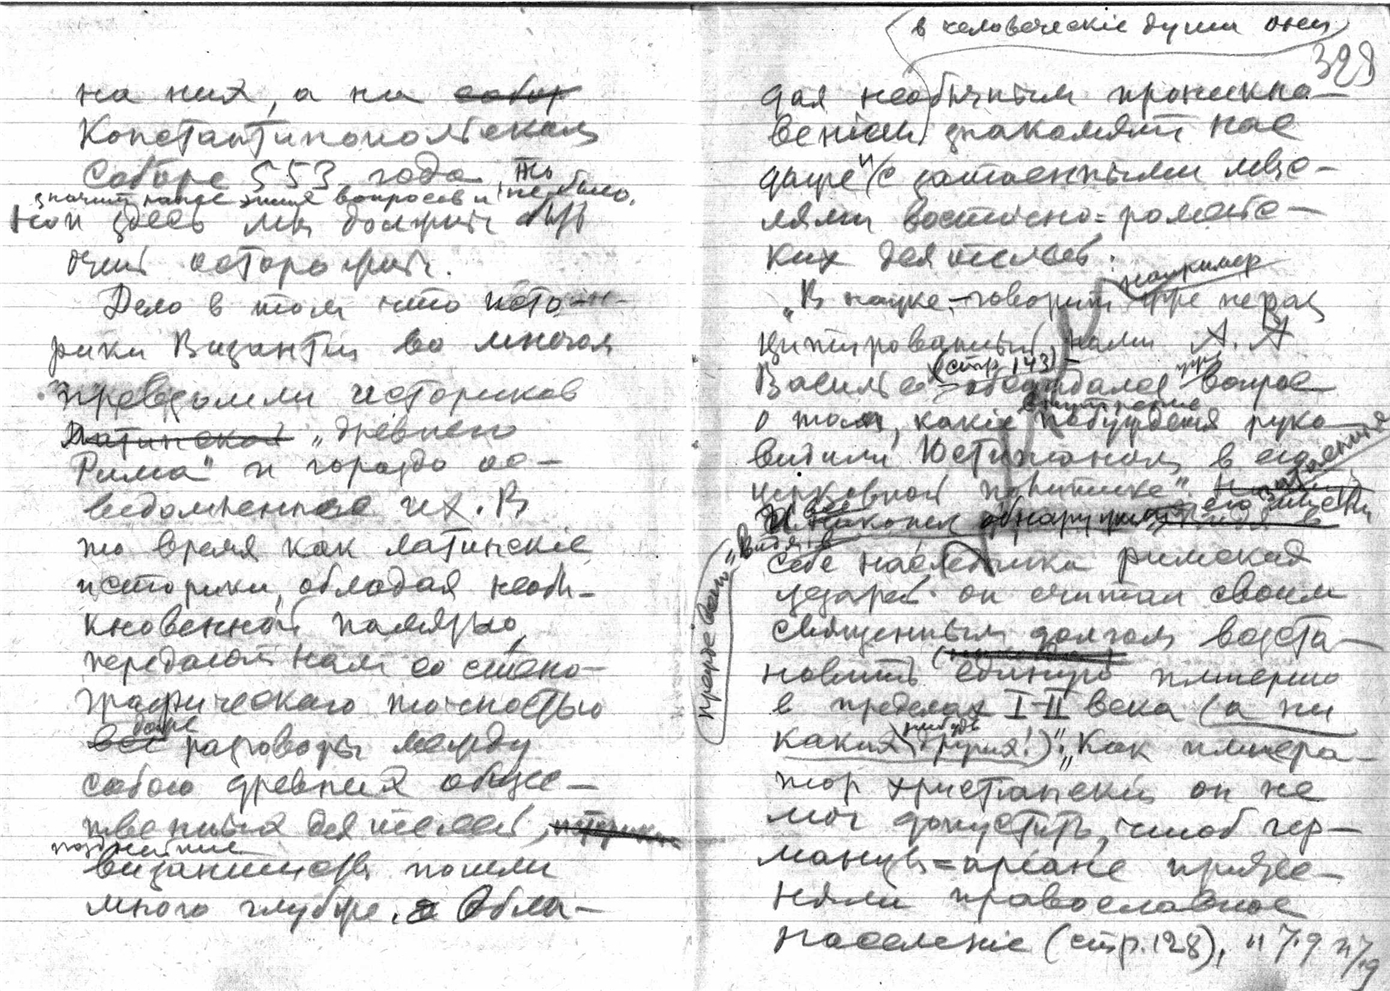 на них, а ни собор
Константинопольском
Соборе 553 года, то
значит такие вопросы и не было.
Но и здесь мы должны быть
очень осторожны.
Дело в том что исто-
рики Византии во многом
превзошли историков
Латинской „древнего
Рима" и гораздо ос-
ведомленнее их. В
то время как латинскіе
историки, обладая необы-
кновенной памятью,
передают нам со стено-
графическаго точностью
все даже разговоры между
собою древних обще-
ственных деятелей,
позднейшие
византисты пошли
много глубже. Обла-
в человеческіе души они
328
дая необычным проникно-
веніем знакомят нас
даже и с затаенными мыс-
лями восточно=ромейс-
ких деятелей.
например
„В науке,—говорит уже нераз
цитированный нами А. А.
(стр. 143)
Васильев — обсуждался вопрос
о том, какіе побужденія руко-
водили Юстинианом в его
церковной политике"
затаенныя
его мысли
прежде всего = „Видя в
себе наследника римских
цезарей он считал своим
священным долгом возста-
новить единую имперію
в пределах I-II века (а ни
каких нибудь других!)". „Как импера-
тор христианскій он не
мог допустить, чтоб гер-
манцы=аріане притес-
няли православное
населеніе (стр. 128),